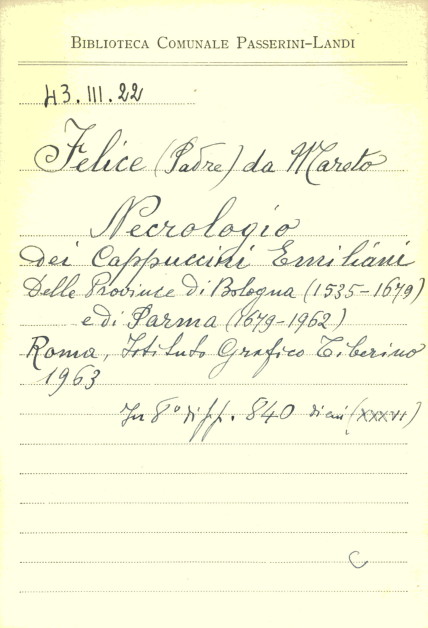 BIBLIOTECA COMUNALE PASSERINI-LANDI
43. III. 22
Felice (Padre) da Mareto
Necrologio
dei Cappuccini Emiliani
Delle Provincie di Bologna (1535-1679)
e di Parma (1679-1962)
Roma, Istituto Grafico Tiberino
1963
In 8° di pp. 840 di cui (XXXVI)
C